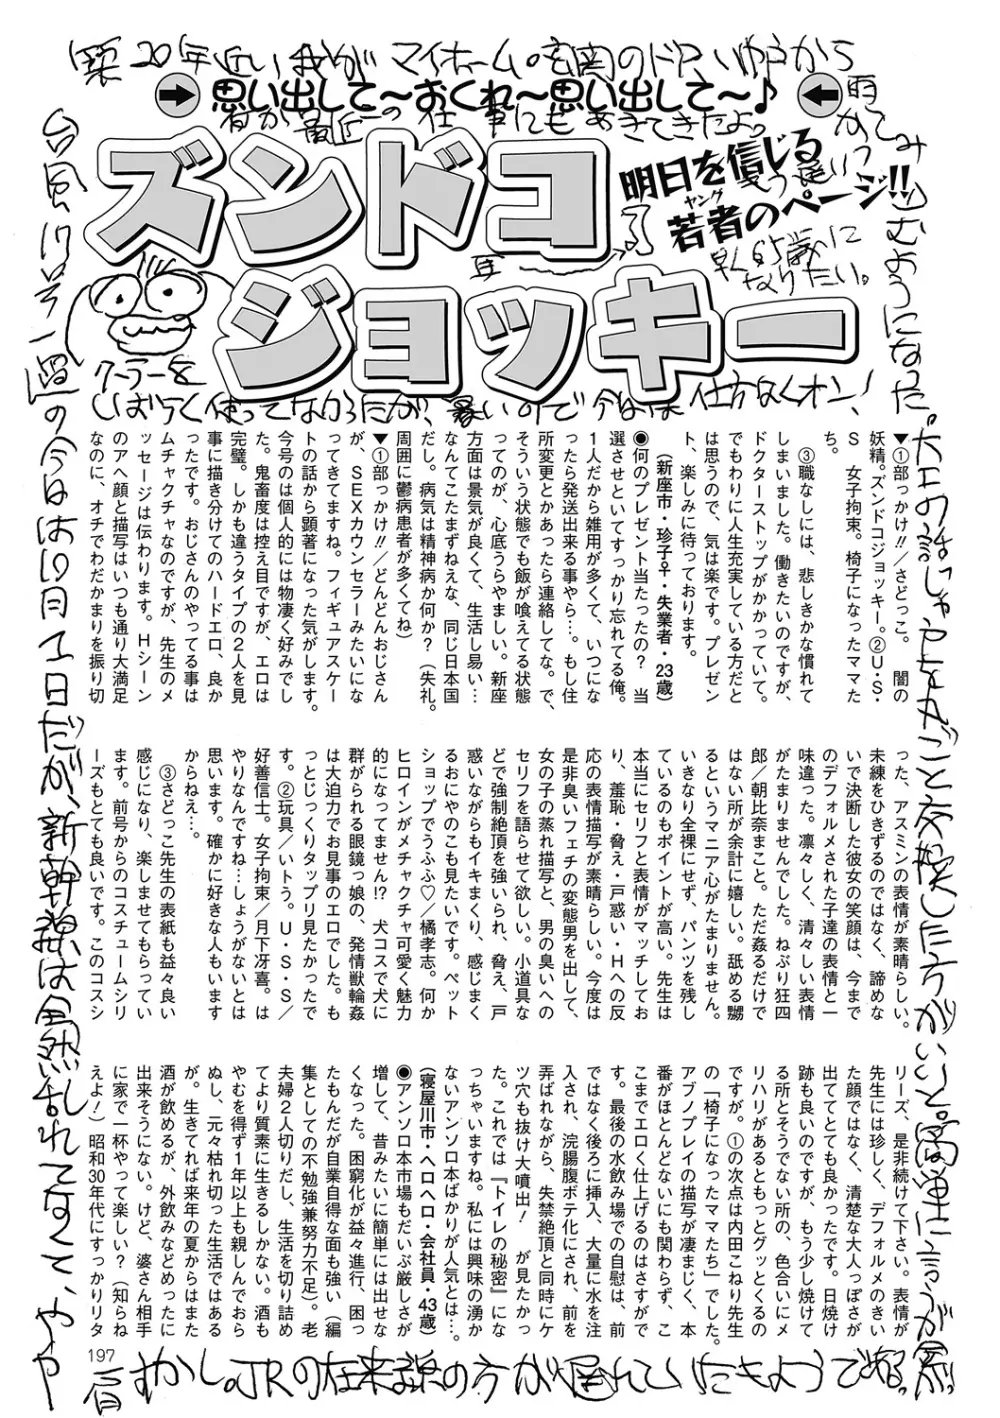 築20年近い我がマイホーム。玄関のドアいゆから
思い出して〜おくれ〜思い出して〜♪
ズンドコ
ジョッキー
明日を信じる
若者のページ!!
ヤング
早く65歳に
なりたい。
クーラーを
しばらく使ってなかったが、暑いので今は仕方なくオン!
▼①部っかけ!!／さどっこ。　闇の
妖精。ズンドコジョッキー。②U・S・
S　女子拘束。椅子になったママた
ち。
　③職なしには、悲しきかな慣れて
しまいました。働きたいのですが、
ドクターストップがかかっていて。
でもわりに人生充実している方だと
は思うので、気は楽です。プレゼン
ト、楽しみに待っております。
（新座市・珍子♀・失業者・23歳）
◉何のプレゼント当たったの？　当
選させといてすっかり忘れてる俺。
1人だから雑用が多くて、いつにな
ったら発送出来る事やら…。もし住
所変更とかあったら連絡してな。で、
そういう状態でも飯が喰えてる状態
ってのが、心底うらやましい。新座
方面は景気が良くて、生活し易い…
なんてこたまずねえな、同じ日本国
だし。病気は精神病か何か？（失礼。
周囲に鬱病患者が多くてね）
▼①部っかけ!!／どんどんおじさん
が、SEXカウンセラーみたいにな
ってきてますね。フィギュアスケー
トの話から顕著になった気がします。
今号のは個人的には物凄く好みでし
た。鬼畜度は控え目ですが、エロは
完璧。しかも違うタイプの2人を見
事に描き分けてのハードエロ、良か
ったです。おじさんのやってる事は
ムチャクチャなのですが、先生のメ
ッセージは伝わります。Hシーン
のアヘ顔と描写はいつも通り大満足
なのに、オチでわだかまりを振り切
った、アスミンの表情が素晴らしい。
未練をひきずるのではなく、諦めな
いで決断した彼女の笑顔は、今まで
のデフォルメされた子達の表情と一
味違った。凛々しく、清々しい表情
がたまりませんでした。ねぶり狂四
郎／朝比奈まこと。ただ姦るだけで
はない所が余計に嬉しい。舐める嬲
るというマニア心がたまりません。
いきなり全裸にせず、パンツを残し
ているのもポイントが高い。先生は
本当にセリフと表情がマッチしてお
り、羞恥・脅え・戸惑い・Hへの反
応の表情描写が素晴らしい。今度は
是非臭いフェチの変態男を出して、
女の子の蒸れ描写と、男の臭いへの
セリフを語らせて欲しい。小道具な
どで強制絶頂を強いられ、脅え、戸
惑いながらもイキまくり、感じまく
るおにやのこも見たいです。ペット
ショップでうふふ♡／橘孝志。何か
ヒロインがメチャクチャ可愛く魅力
的になってません!?　犬コスで犬に
群がられる眼鏡っ娘の、発情獣輪姦
は大迫力でお見事のエロでした。も
っとじっくりタップリ見たかったで
す。②玩具／いトう。U・S・S／
好善信士。女子拘束／月下冴喜。は
やりなんですね…しょうがないとは
思います。確かに好きな人もいます
からねえ…。
　③さどっこ先生の表紙も益々良い
感じになり、楽しませてもらってい
ます。前号からのコスチュームシリ
ーズもとても良いです。このコスシ
リーズ、是非続けて下さい。表情が
先生には珍しく、デフォルメのきい
た顔ではなく、清楚な大人っぽさが
出ててとても良かったです。日焼け
跡も良いのですが、もう少し焼けて
る所とそうでない所の、色合いにメ
リハリがあるともっとグッとくるの
ですが。①の次点は内田こねり先生
の「椅子になったママたち」でした。
アブノプレイの描写が凄まじく、本
番がほとんどないにも関わらず、こ
こまでエロく仕上げるのはさすがで
す。最後の水飲み場での自慰は、前
ではなく後ろに挿入、大量に水を注
入され、浣腸腹ボテ化にされ、前を
弄ばれながら、失禁絶頂と同時にケ
ツ穴も抜け大噴出！　が見たかっ
た。これでは『トイレの秘密』にな
っちゃいますね。私には興味の湧か
ないアンソロ本ばかりが人気とは…。
（寝屋川市・ヘロヘロ・会社員・43歳）
◉アンソロ本市場もだいぶ厳しさが
増して、昔みたいに簡単には出せな
くなった。困窮化が益々進行、困っ
たもんだが自業自得な面も強い（編
集としての不勉強兼努力不足）。老
夫婦2人切りだし、生活を切り詰め
てより質素に生きるしかない。酒も
やむを得ず1年以上も親しんでおら
ぬし、元々枯れ切った生活ではある
が。生きてれば来年の夏からはまた
酒が飲めるが、外飲みなどめったに
出来そうにない。けど、婆さん相手
に家で一杯やって楽しい？（知らね
えよ！）昭和30年代にすっかりリタ
台風17号一過の今は10月1日だが、新幹線は全然乱れてなくて、やや
肩すかし。JRの在来線の方が遅れていたようである。
197